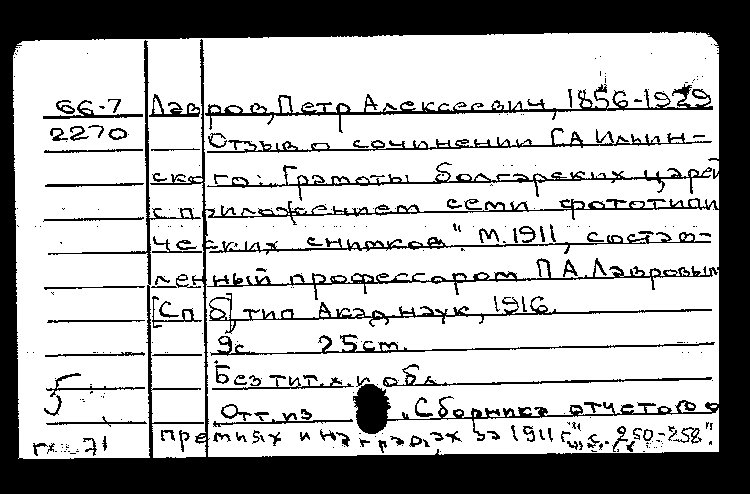 66-7 Лавров, Петр Алексеевич, 1856-1929
2270 Отзыв о сочинении Г.А. Ильин-
ского: "Грамоты болгарских царей
с приложением семи фототипи
ческих снимков". М. 1911, состав-
ленный профессаром П.А. Лавровым
[Спб], тип Акад. наук, 1916.
9с 25cm.
Без тит. л. и обл.
5 Отт. из "Сборника отчетов о
71 премиях и наградах за 1911 г.", с. 250-258".